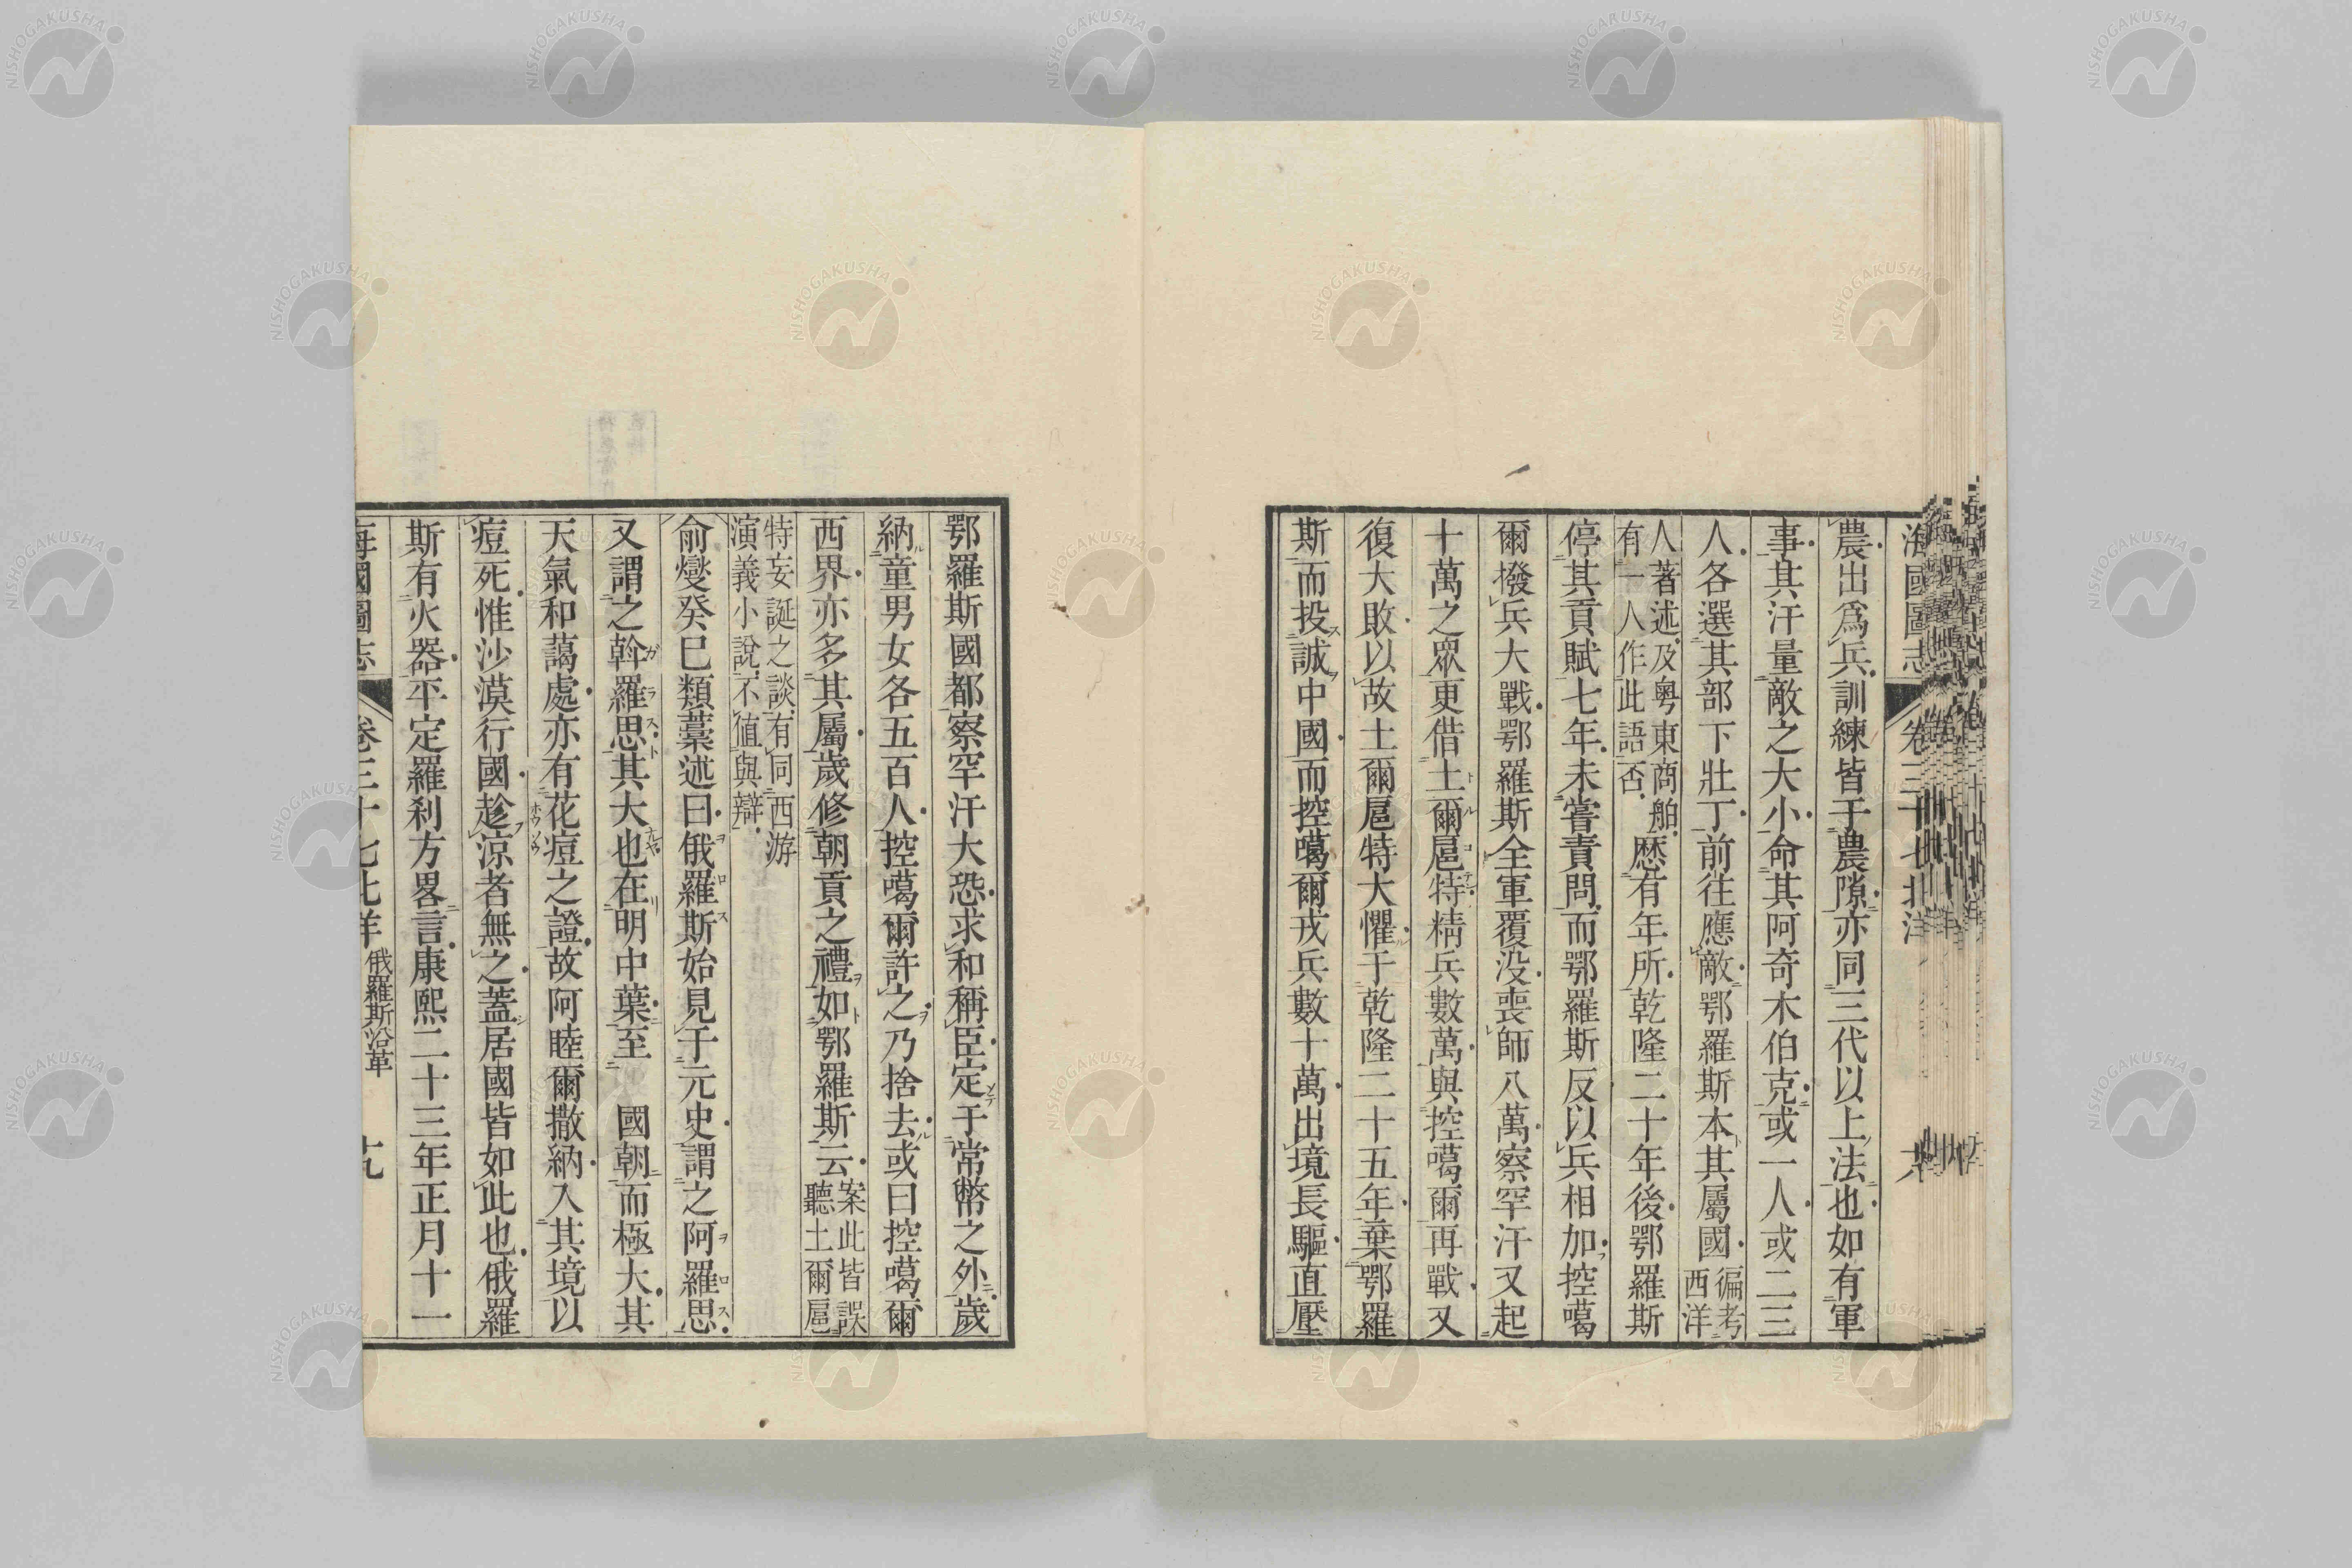 海國圖志 卷三十七 北洋
農出爲兵訓練皆于農隙亦同三代以上法也如有軍
事其汗量敵之大小命其阿奇木伯克或一人或二三
人各選其部下壯丁前往應敵鄂羅斯本其屬國徧考西洋
人著述及粵東商舶有一人作此語否歷有年所乾隆二十年後鄂羅斯
停其貢賦七年未嘗責問而鄂羅斯反以兵相加控噶
爾撥兵大戰鄂羅斯全軍覆没喪師八萬察罕汗又起
十萬之眾更借土爾扈特精兵數萬與控噶爾再戰又
復大敗以故土爾扈特大懼于乾隆二十五年棄鄂羅
斯而投誠中國而控噶爾戎兵數十萬出境長驅直壓
鄂羅斯國都察罕汗大恐求和稱臣定于常幣之外歲
納童男女各五百人控噶爾許之乃捨去或曰控噶爾
西界亦多其屬歲修朝貢之禮如鄂羅斯云案此皆誤聽土爾扈
特妄誕之談有同西游演義小說不値與辯
俞燮癸巳類藁述曰俄羅斯始見于元史謂之阿羅思
又謂之斡羅思其大也在明中葉至 國朝而極大其
天氣和藹處亦有花痘之證故阿睦爾撒納入其境以
痘死惟沙漠行國趁涼者無之蓋居國皆如此也俄羅
斯有火器平定羅刹方畧言康熙二十三年正月十一
海國圖志 卷三十七 北洋 俄羅斯沿革 十九
NISHOGAKUSHA